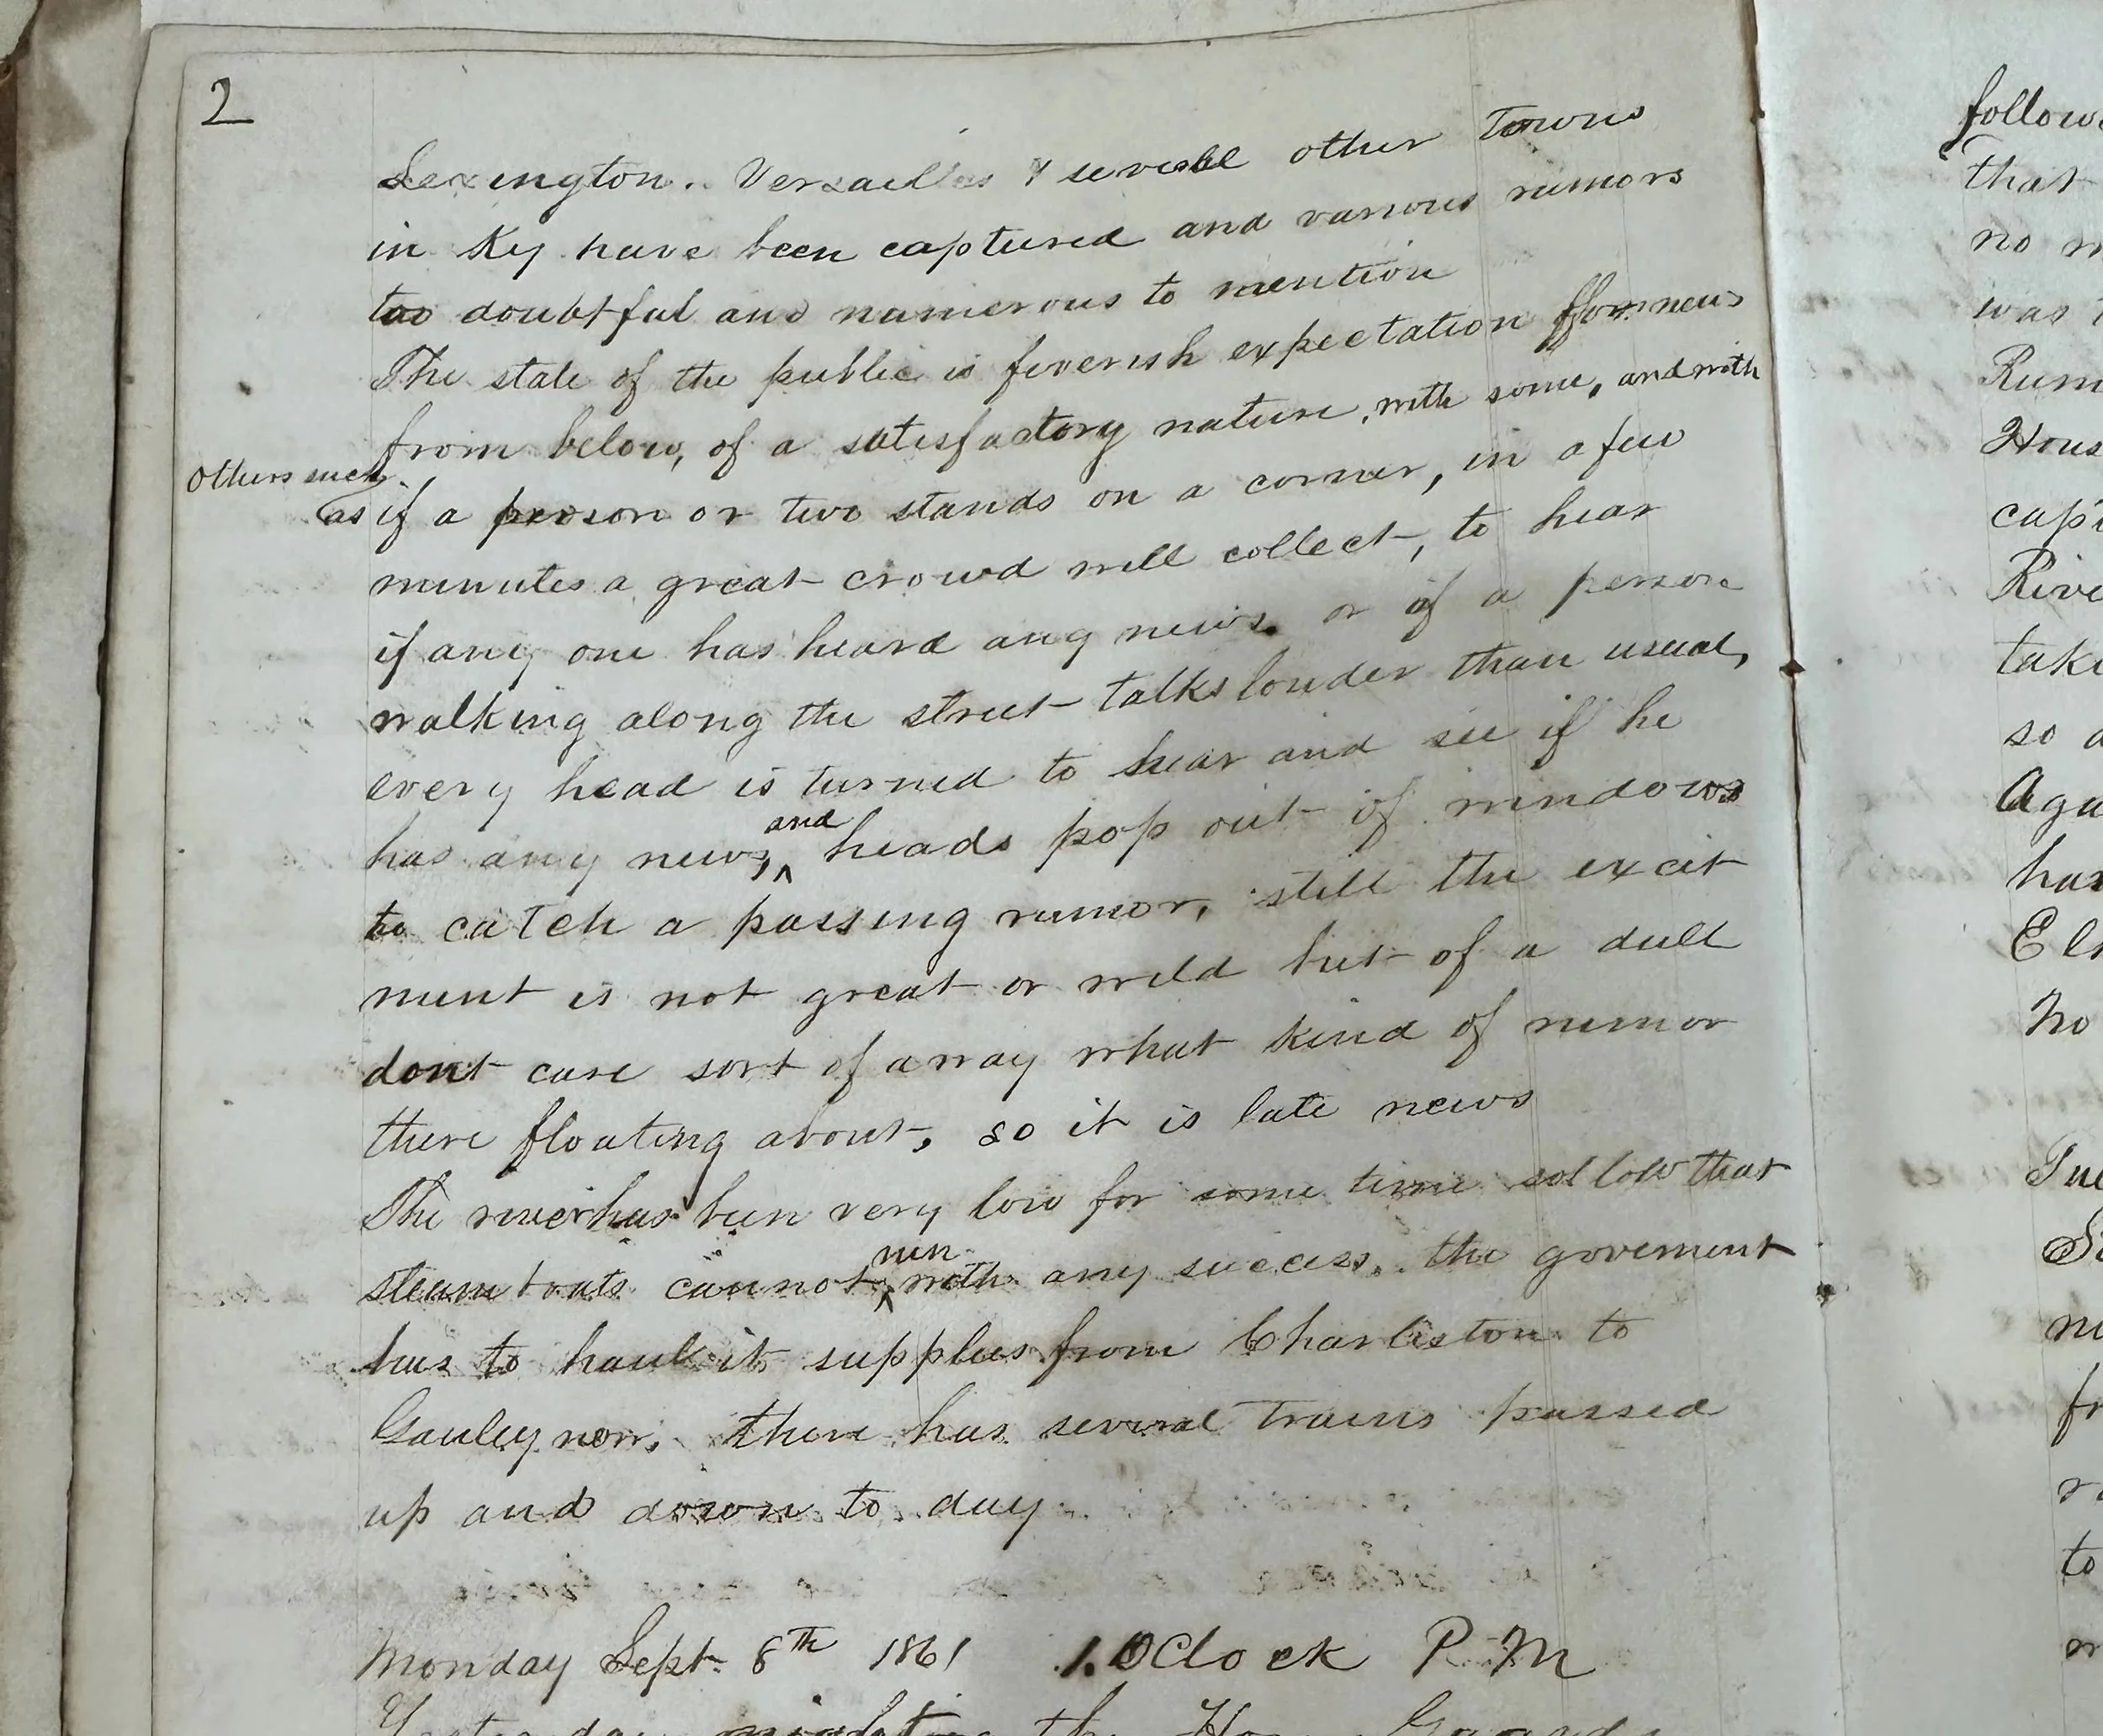 2
Lexington. Versailles & several other Towns
in Ky have been captured and various rumors
too doubtful and numerous to mention
The state of the public is feverish expectation for news
from below, of a satisfactory nature, with some, and with
others such
as if a person or two stands on a corner, in a few
minutes a great crowd will collect, to hear
if any one has heard any news. or if a person
walking along the street talks louder than usual,
every head is turned to hear and see if he
has any news, and heads pop out of windows
to catch a passing rumor, still the excit
ment is not great or wild but of a dull
dont care sort of a way what kind of rumor
there floating about, so it is late news
The river has been very low for some time so low that
steam boats cannot run with any success. the goverment
has to haul it supplies from Charleston to
Gauley now, there has several trains passed
up and down to day
Monday Sept. 8th 1861 1. OClock P. M
Yesterday the Home Guards
follow
that
no
was
Rum
Hous
capt
Rive
take
so a
Aga
has
El
no
Tue
fr
to